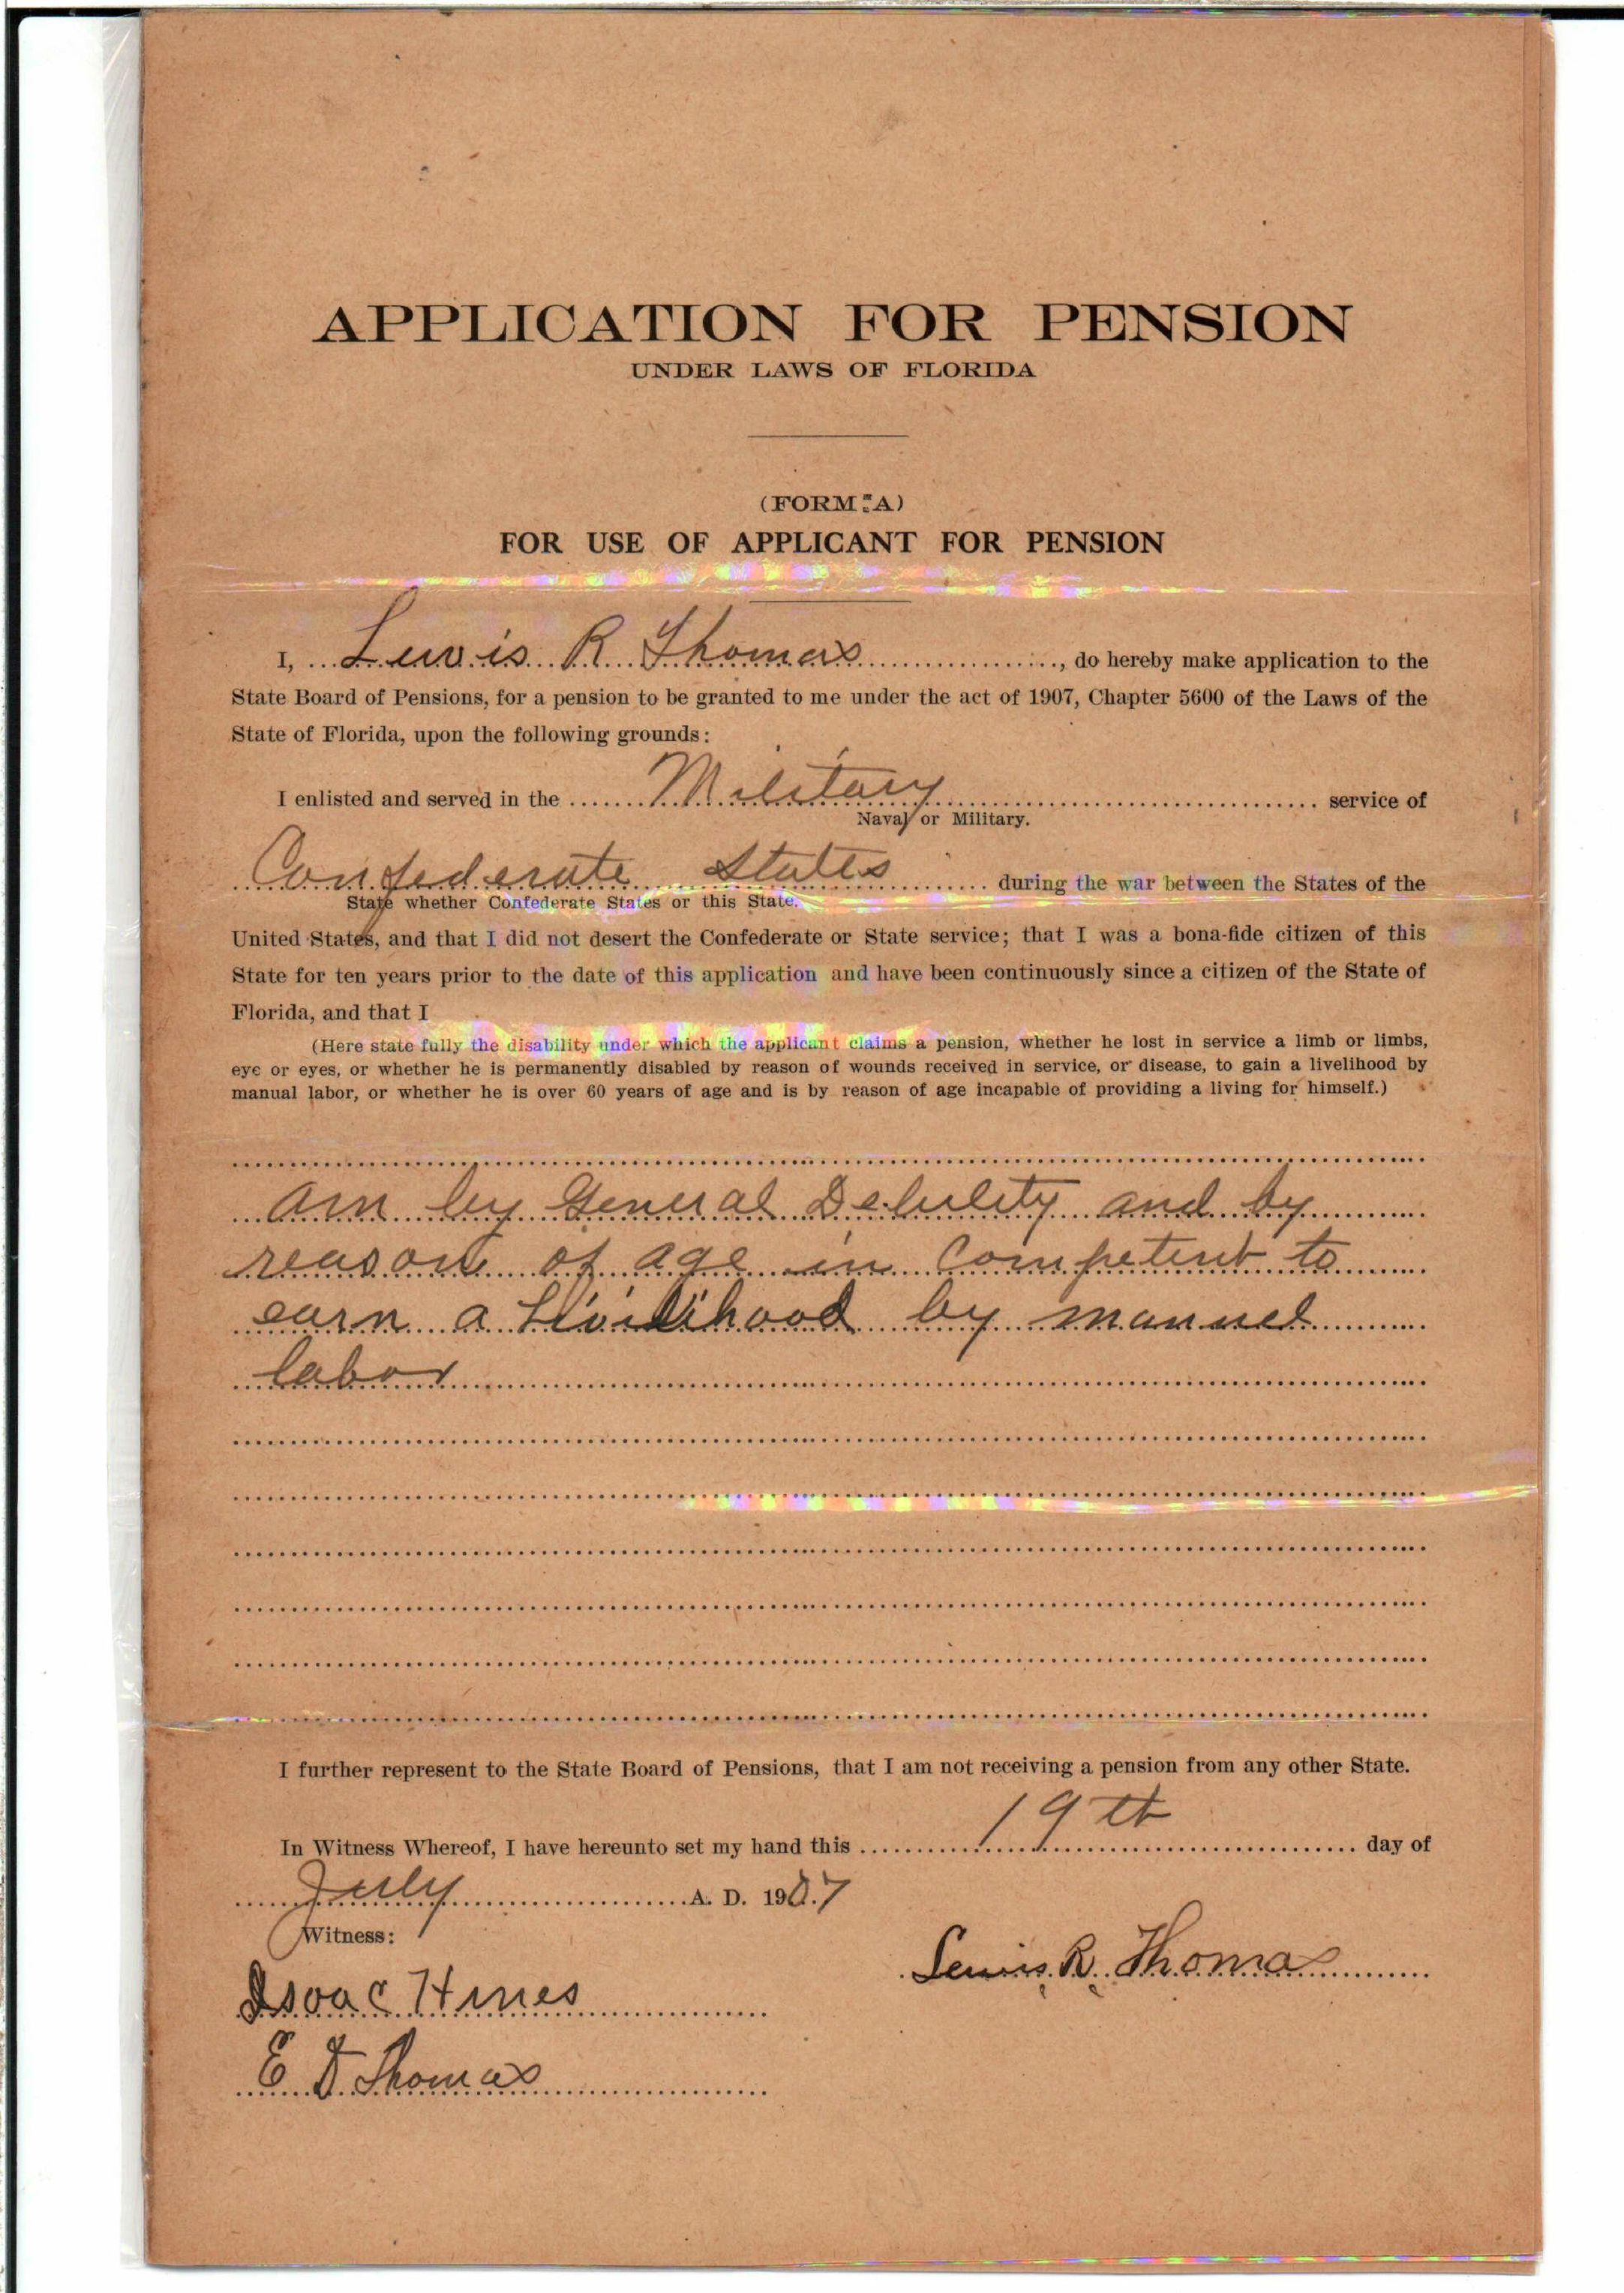 APPLICATION FOR PENSION
UNDER LAWS OF FLORIDA
(FORM A)
FOR USE OF APPLICANT FOR PENSION
I, Lewis R Thomas, do hereby make application to the
State Board of Pensions, for a pension to be granted to me under the act of 1907, Chapter 5600 of the Laws of the
State of Florida, upon the following grounds:
I enlisted and served in the Military service of
Naval or Military.
Confederate States during the war between the States of the
State whether Confederate States or this State.
United States, and that I did not desert the Confederate or State service; that I was a bona-fide citizen of this
State for ten years prior to the date of this application and have been continuously since a citizen of the State of
Florida, and that I
(Here state fully the disability under which the applicant claims a pension, whether he lost in service a limb or limbs,
eye or eyes, or whether he is permanently disabled by reason of wounds received in service, or disease, to gain a livelihood by
manual labor, or whether he is over 60 years of age and is by reason of age incapable of providing a living for himself.)
am by General Debility and by
reason of age in Competent to
earn a Livilihood by manuel
labor
I further represent to the State Board of Pensions, that I am not receiving a pension from any other State.
In Witness Whereof, I have hereunto set my hand this 19th day of
July A. D. 1907
Witness:
Lewis R. Thomas
Isaac Hines
E D Thomas